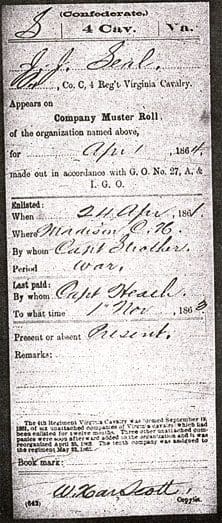 (Confederate.)
S | 4 Cav. | Va.
J. J. Seal
, Co. C, 4 Reg't Virginia Cavalry.
Appears on
Company Muster Roll
of the organization named above,
for April, 1864
made out in accordance with G. O. No. 27, A. &
I. G. O.
Enlisted:
When 24 Apr, 1861
Where Madison C. H.
By whom Capt Strother
Period War.
Last paid:
By whom Capt
To what time 1 Nov, 1863
Present or absent Present.
Remarks:
The 4th Regiment Virginia Cavalry was formed September 19,
1861, of six unattached companies of Virginia cavalry which had
been enlisted for twelve months. Three other unattached com-
panies were soon afterward added to the organization and it was
reorganized April 25, 1862. The tenth company was assigned to
the regiment May 22, 1862.
Book mark:
Scott
(642) Copyist.